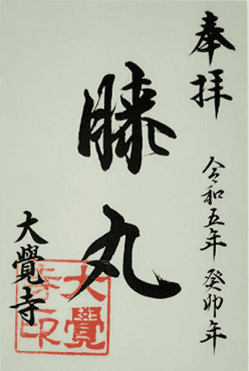 奉拝
令和五年 癸卯年
膝丸
大覺寺
大覺
寺印